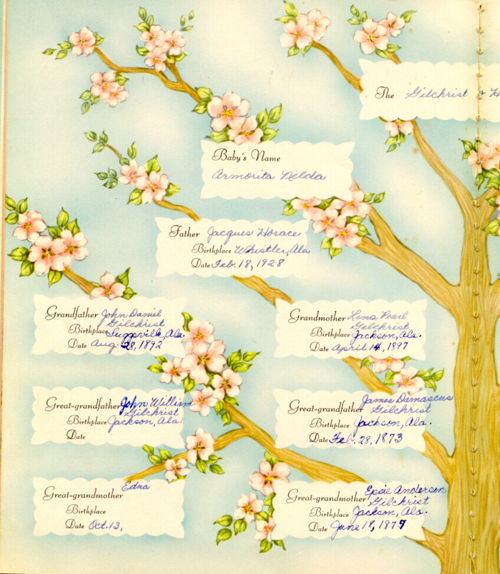 The Gilchrist + H
Baby's Name
Armorita Nelda
Father Jacques Horace
Birthplace Whistler, Ala
Date Feb. 18, 1928
Grandfather John Daniel
Gilchrist
Birthplace Suggsville, Ala.
Date Aug 28, 1892
Grandmother Lena Pearl
Gilchrist
Birthplace Jackson, Ala.
Date April 14, 1897
Great-grandfather John William
Gilchrist
Birthplace Jackson, Ala
Date
Great-grandfather James Damascus
Gilchrist
Birthplace Jackson, Ala.
Date Feb. 28, 1873
Great-grandmother Edna
Birthplace
Date Oct. 13,
Great-grandmother Essie Anderson
Gilchrist
Birthplace Jackson, Ala.
Date June 18, 1877